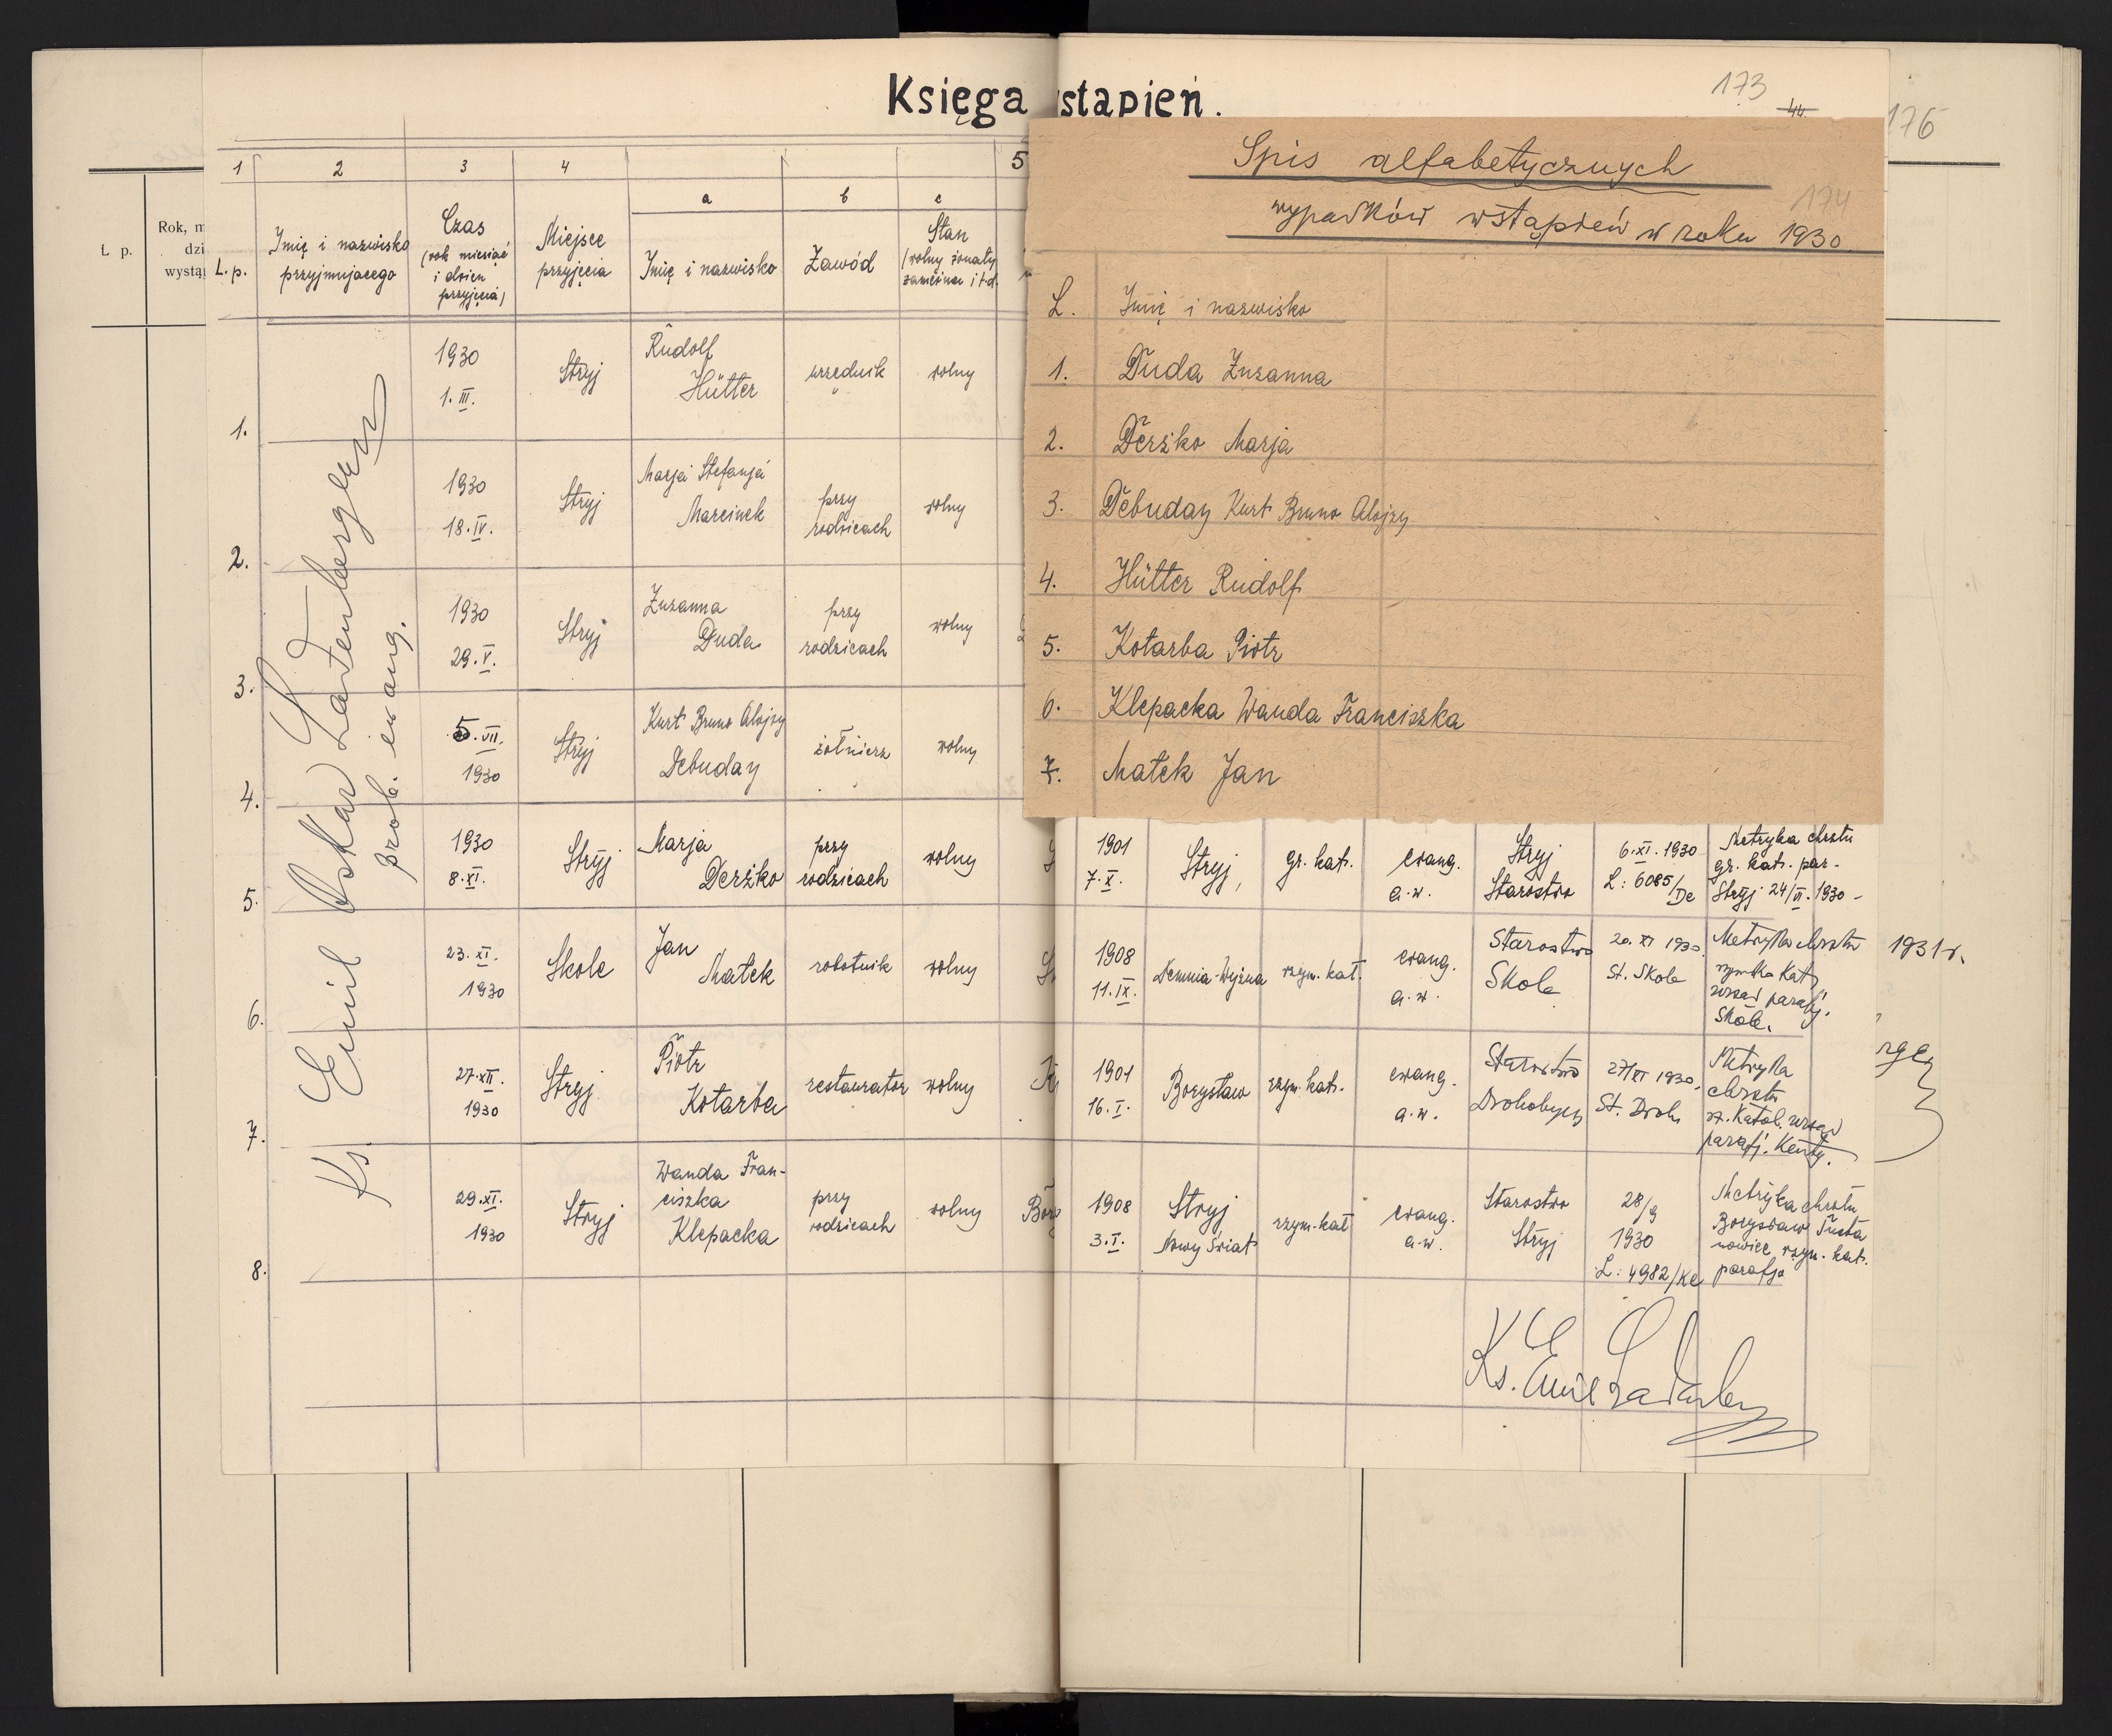 Księga wstąpień.
173
44
176
1 2 3 4 5
a b c
Ł p.
Rok, m
dzi
wystąp
L.p.
Imię i nazwisko
przyjmującego
Czas
(rok miesiąc
i dzien
przyjęcia)
Miejsce
przyjęcia
Imię i nazwisko
Zawód
Stan
(wolny żonaty
zamężna i t d.
Ks. Emil Oskar Ladenberger
prob. ewang.
1.
1930
1. III.
Stryj
Rudolf
Hütter
urzędnik
wolny
2.
1930
18. IV.
Stryj
Marja Stefanja
Marcinek
przy
rodzicach
wolny
3.
1930
29. V.
Stryj
Zuzanna
Duda
przy
rodzicach
wolny
4.
5. VII.
1930
Stryj
Kurt Bruno Alojzy
Debuday
żołnierz
wolny
5.
1930
8. XI.
Stryj
Marja
Derżko
przy
rodzicach
wolny
1901
7. X.
Stryj,
gr. kat.
ewang.
a. w.
Stryj
Starostwo
6. XI. 1930
L: 6085/De
Metryka chrztu
gr. kat. par.
Stryj 24/VI. 1930 -
6.
23. XI.
1930
Skole
Jan
Małek
robotnik
wolny
1908
11. IX.
Demnia-Wyżna
rzym. kat.
ewang.
a. w.
Starostwo
Skole
20. XI 1930.
St. Skole
Metryka chrztu
rzymska Kat.
urząd parafj.
Skole.
1931 r.
7.
27. XII.
1930
Stryj.
Piotr
Kotarba
restaurator
wolny
1901
16. I.
Borysław
rzym. kat.
ewang.
a. w.
Starostwo
Drohobycz
27/XI 1930.
St. Droh.
Metryka
chrztu
rz. Katol. urząd
parafj. Kenty.
8.
29. XI.
1930
Stryj
Wanda Fran-
ciszka
Klepacka
przy
rodzicach
wolny
1908
3. I.
Stryj
Nowy Świat
rzym. kat
ewang.
a. w.
Starostwo
Stryj
28/9
1930
L: 4982/Ke
Metryka chrztu
Borysław Tusta
nowice rzym. kat.
parafja
Ks. Emil Ladenberger
Spis alfabetycznych
174
wypadków wstąpień w roku 1930
L. Imię i nazwisko
1. Duda Zuzanna
2. Derżko Marja
3. Debuday Kurt Bruno Alojzy
4. Hütter Rudolf
5. Kotarba Piotr
6. Klepacka Wanda Franciszka
7. Małek Jan